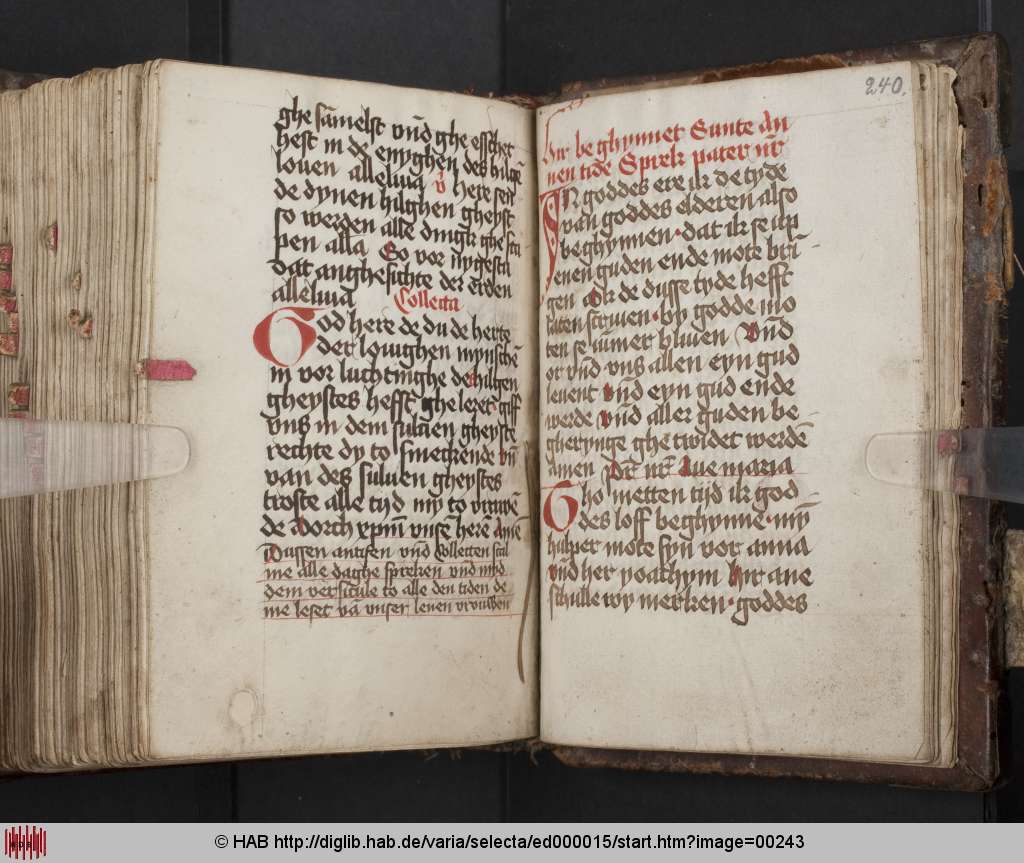 ghe sāmelst vn̄d ghe esschet
hest in de enyghen des hilgē
louen alleluia v̄ here sen
de dynen hilghen gheyst
so werden alle dingk ghe sca
pen alla So vor nygestu
dat anghesichte der Erden
alleluia Collecta
God here de du de herte
der louighen mynschē
in vor luchtinghe des hilgen
gheystes hefft ghe leret giff
vns in dem suluen gheyste
rechte dy to smeckende vn̄
van des suluen gheystes
troste alle tyd my to vrowē
de dorch xpm̄ vnse here Amē
Dussen antifen vnd Collecten scal
me alle daghe spreken vnd myd
dem versicule to alle den tiden de
me leset vā vnser leuen vrouwen
240.
Hir beghynnet Sunte An
nen tide Sprek pater nr̄
IN goddes ere ik de tyde
van goddes elderen also
beghynnen dat ik se up
enen guden ende mote brī
gen Ok de dusse tyde hefft
laten scriuen by godde mo
ten se īmer bliuen Vn̄d
or vn̄d vns allen eyn gud
leuent vn̄d eyn gud ende
werde vn̄d aller guden be
gherynge ghe twidet werdē
amen Pr̄ nr̄ Aue maria
Tho metten tijd ik god
des loff beghynne my
hulper mote syn vor anna
vnd her yoachym hir ane
schulle wy merken goddes
© HAB http://diglib.hab.de/varia/selecta/ed000015/start.htm?image=00243